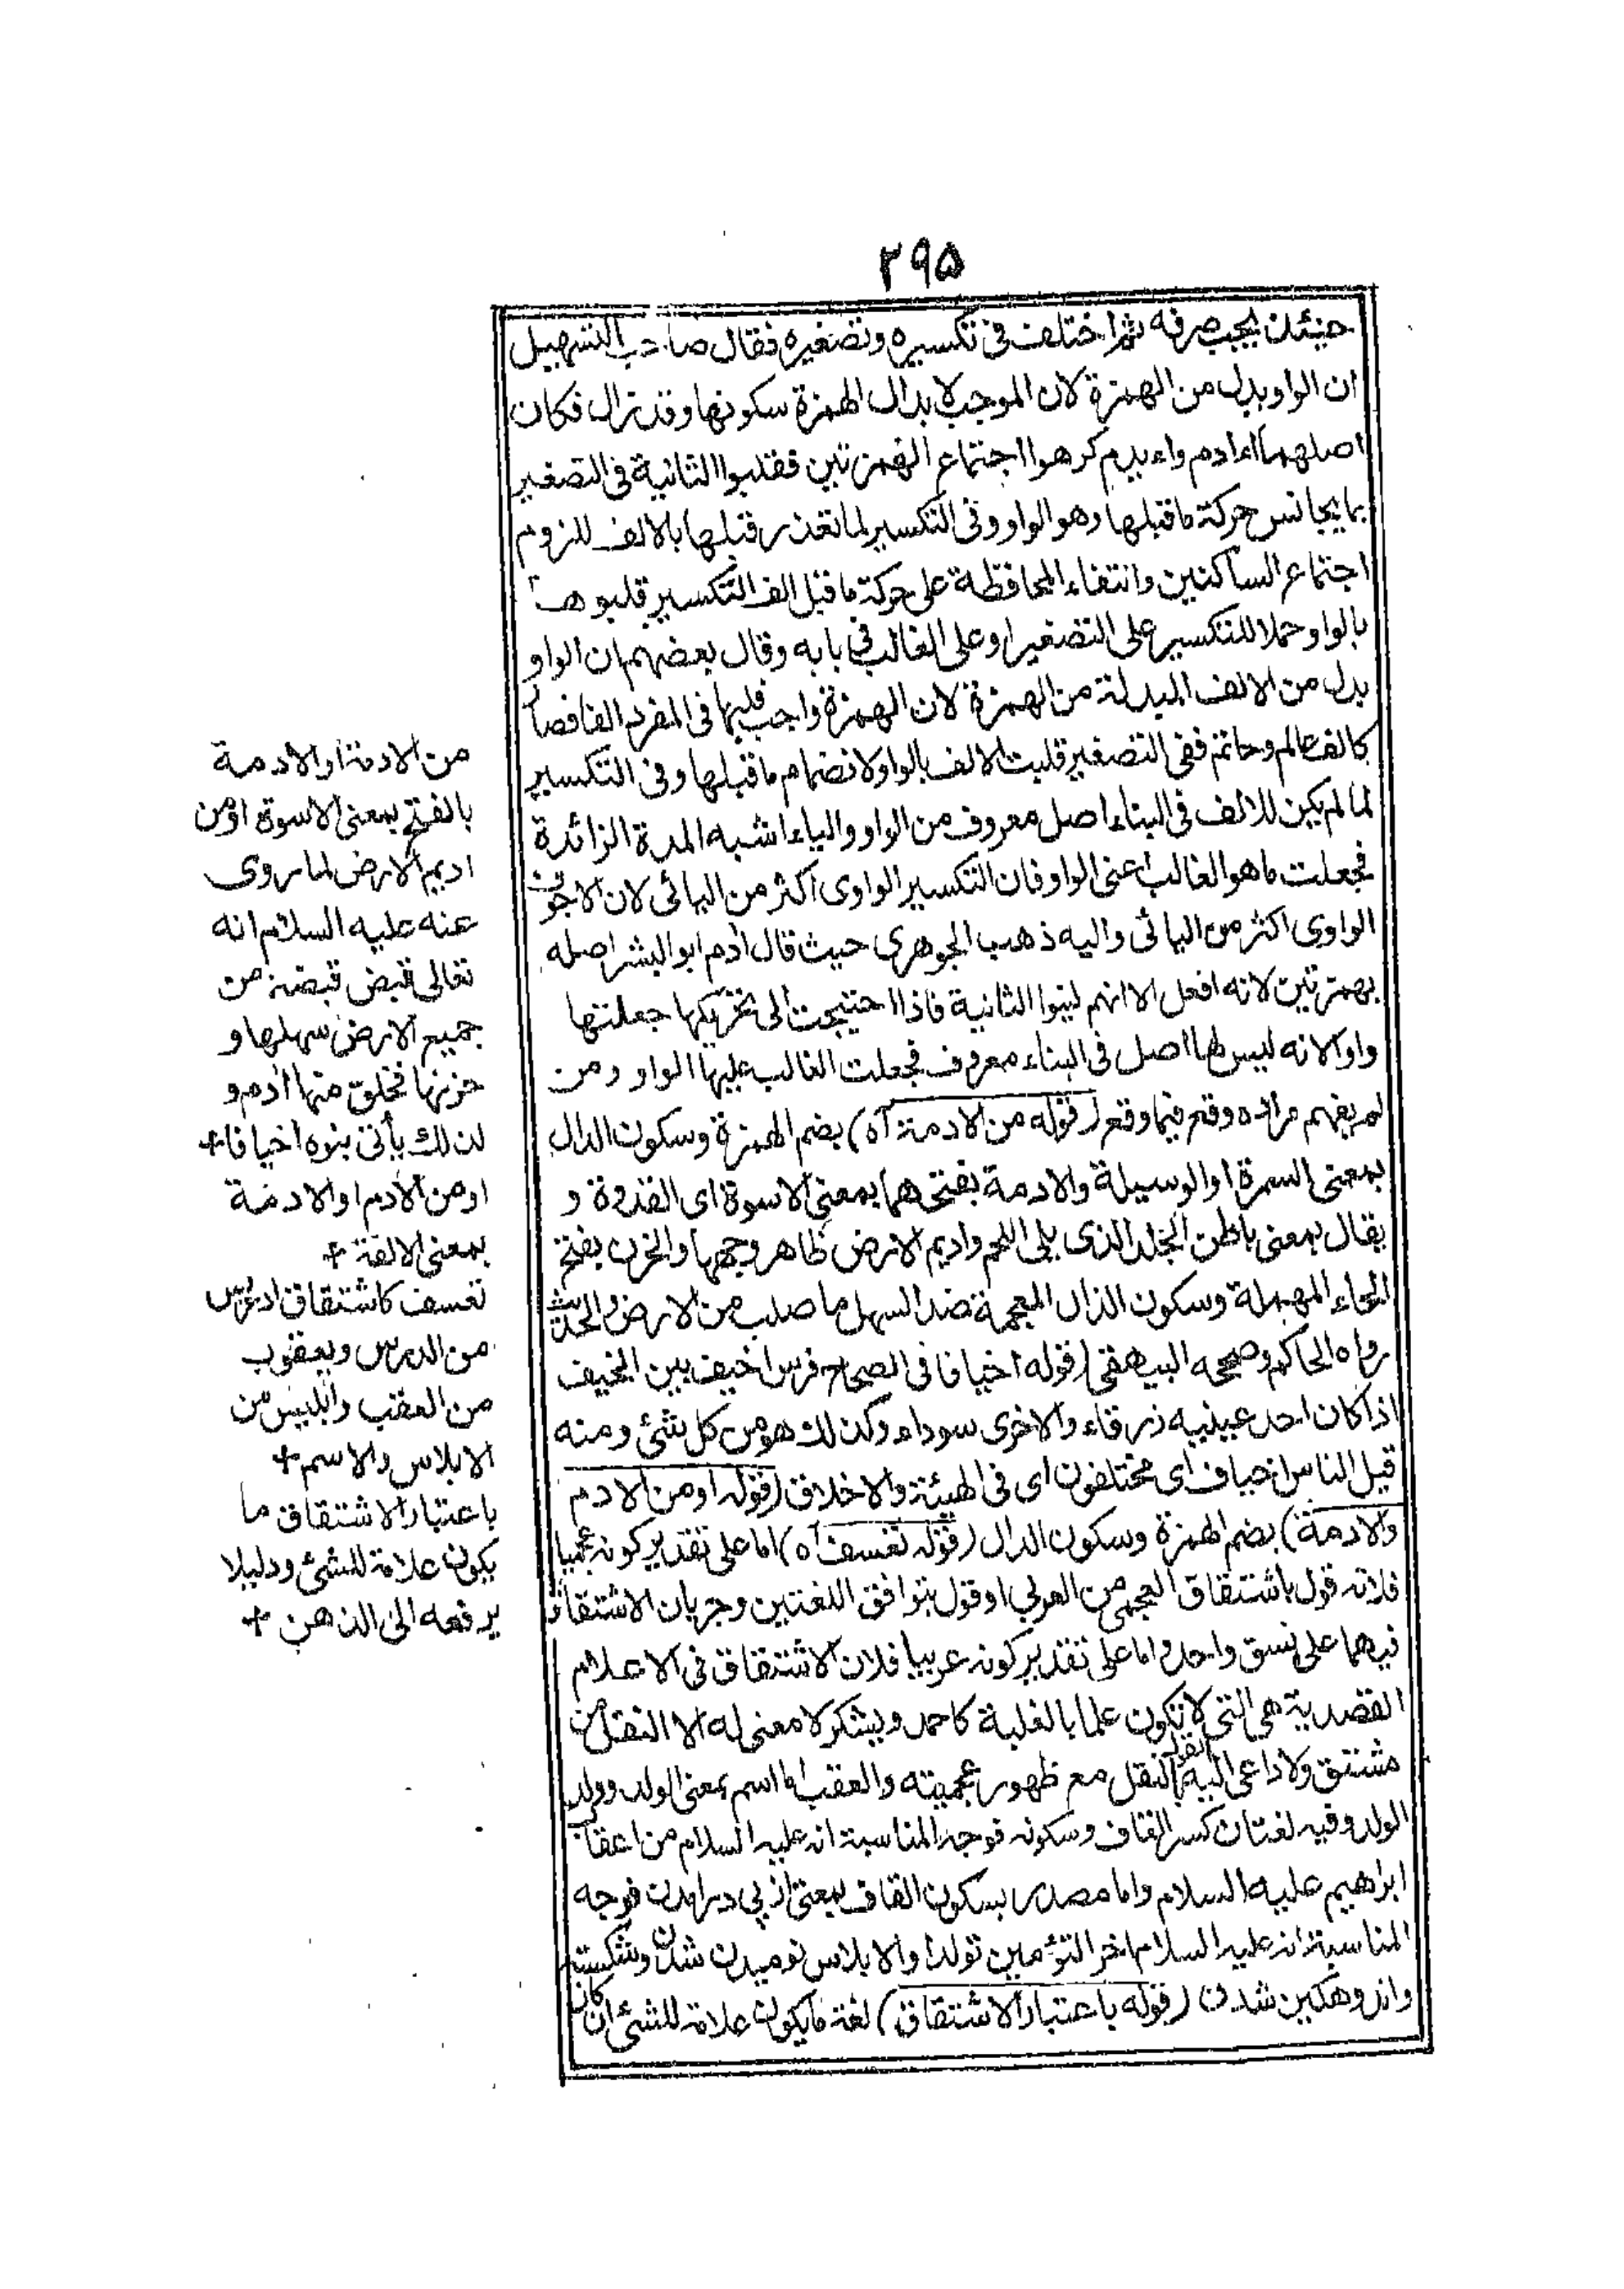 ۲۹۵
حينئذ يجب صرفه ثم اختلف فى تكسيره وتصغيره فقال صاحب التسهيل
ان الواو بدل من الهمزة لان الموجب لابدال الهمزة سكونها وقد زال فكان
اصلهما اءادم واءيدم كرهوا اجتماع الهمزتين فقلبوا الثانية فى التصغير
بما يجانس حركة ما قبلها وهو الواو وفى التكسير لما تعذر قبلها بالالف للزوم
اجتماع الساكنين وانتفاء المحافظة على حركة ما قبل الف التكسير قلبوها
بالواو حملا للتكسير على التصغير او على الغالب فى بابه وقال بعضهم ان الواو
بدل من الالف المبدلة من الهمزة لان الهمزة واجب قلبها فى المفرد الفا فصا
كالف عالم وحاتم ففى التصغير قلبت الالف بالواو لانضمام ما قبلها وفى التكسير
لما لم يكن للالف فى البناء اصل معروف من الواو والياء اشبه المدة الزائدة
فجعلت ما هو الغالب اعنى الواو فان التكسير الواوى اكثر من اليائى لان الاجوف
الواوى اكثر من اليائى واليه ذهب الجوهرى حيث قال ادم ابو البشر اصله
بهمزتين لانه افعل الا انهم لينوا الثانية فاذا احتيجت الى تحريكها جعلتها
واوا لانه ليس لها اصل فى البناء معروف فجعلت الغالب عليها الواو ومن
لم يفهم مراده وقع فيما وقع (قوله من الادمة آه) بضم الهمزة وسكون الدال
بمعنى السمرة او الوسيلة والادمة بفتحهما بمعنى الاسوة اى القدوة و
يقال بمعنى باطن الجلد الذى يلى اللحم واديم الارض ظاهر وجهها والحزن بفتح
الحاء المهملة وسكون الذال المعجمة ضد السهل ما صلب من الارض والحديث
رواه الحاكم وصححه البيهقى (قوله اخيافا فى الصحاح فرس اخيف بين الخيف
اذا كان احد عينيه زرقاء والاخرى سوداء وكذلك هو من كل شئ ومنه
قيل الناس اخياف اى مختلفون اى فى الهيئة والاخلاق (قوله او من الادم
والادمة) بضم الهمزة وسكون الدال (قوله تعسف آه) اما على تقدير كونه عجميا
فلانه قول باشتقاق العجمى من العربى او قول بتوافق اللغتين وجريان الاشتقاق
فيهما على نسق واحد واما على تقدير كونه عربيا فلان الاشتقاق فى الاعلام
القصدية هى التى لا تكون علما بالغلبة كاحمد ويشكر لا معنى له الا النقل من
مشتق ولا داعى اليه النقل مع ظهور عجميته والعقب اما اسم بمعنى الولد وولد
الولد وفيه لغتان كسر القاف وسكونه فوجه المناسبة انه عليه السلام من اعقاب
ابراهيم عليه السلام واما مصدر بسكون القاف بمعنى از پى درامدن فوجه
المناسبة انه عليه السلام اخر التؤمين تولدا والابلاس نوميدن شدن وشكسته
واندوهكين شدن (قوله باعتبار الاشتقاق) لغة ما يكون علامة للشئ ان كان
من الادمة او الادمة
بالفتح بمعنى الاسوة او من
اديم الارض لما روى
عنه عليه السلام انه
تعالى قبض قبضة من
جميع الارض سهلها و
حزنها فخلق منها ادم و
لذلك يأتى بنوه اخيافا+
او من الادم او الادمة
بمعنى الالفة +
تعسف كاشتقاق ادريس
من الدرس ويعقوب
من العقب وابليس من
الابلاس والاسم +
باعتبار الاشتقاق ما
يكون علامة للشئ ودليلا
يرفعه الى الذهن +